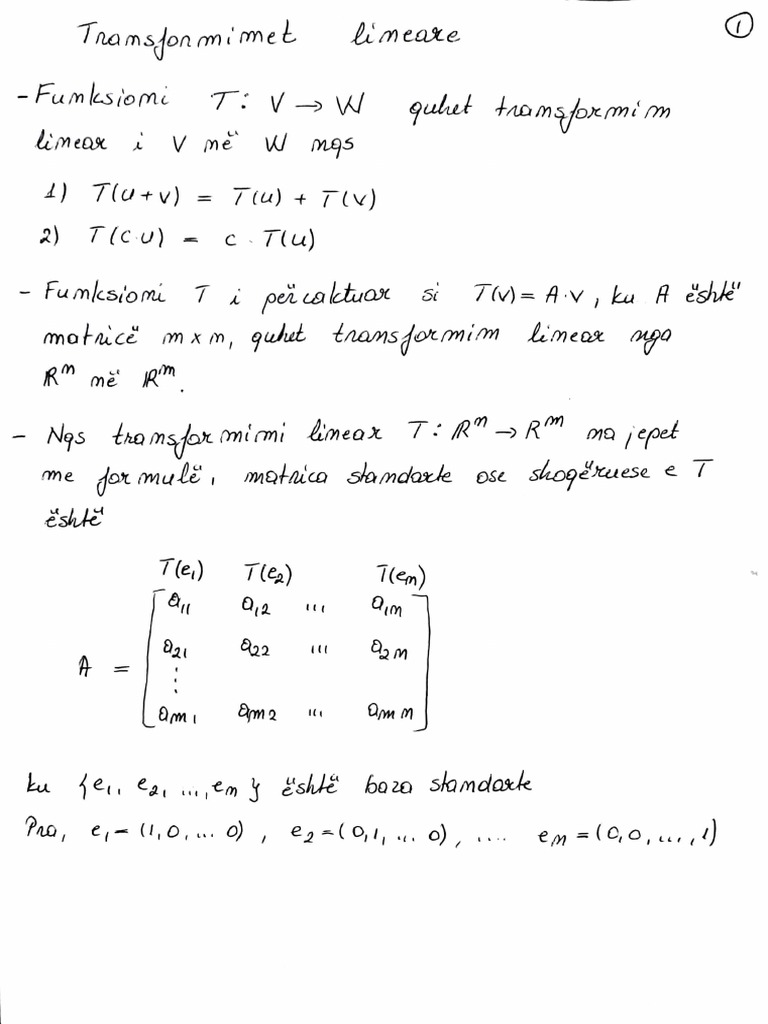 Transformimet lineare ①
- Funksioni T: V → W quhet transformim
linear i V në W nqs
1) T(u+v) = T(u) + T(v)
2) T(c·u) = c · T(u)
- Funksioni T i përcaktuar si T(v) = A·v, ku A është
matricë m×n, quhet transformim linear nga
ℝⁿ në ℝᵐ.
- Nqs transformimi linear T: ℝⁿ → ℝᵐ na jepet
me formulë, matrica standarte ose shoqëruese e T
është
T(e₁) T(e₂) T(eₙ)
a₁₁ a₁₂ ... a₁ₙ
a₂₁ a₂₂ ... a₂ₙ
A =
⋮
aₘ₁ aₘ₂ ... aₘₙ
ku {e₁, e₂, ..., eₙ} është baza standarte
Pra, e₁ = (1,0,... 0), e₂ = (0,1,... 0), .... eₙ = (0,0,...,1)